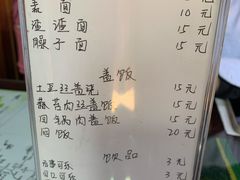 素面 10元
渣渣面 15元
臊子面 15元
盖饭
土豆丝盖浇 15元
蒜苔肉丝盖饭 15元
回锅肉盖饭 15元
回饭 20元
饮品
百事可乐 3元
可口可乐 3元